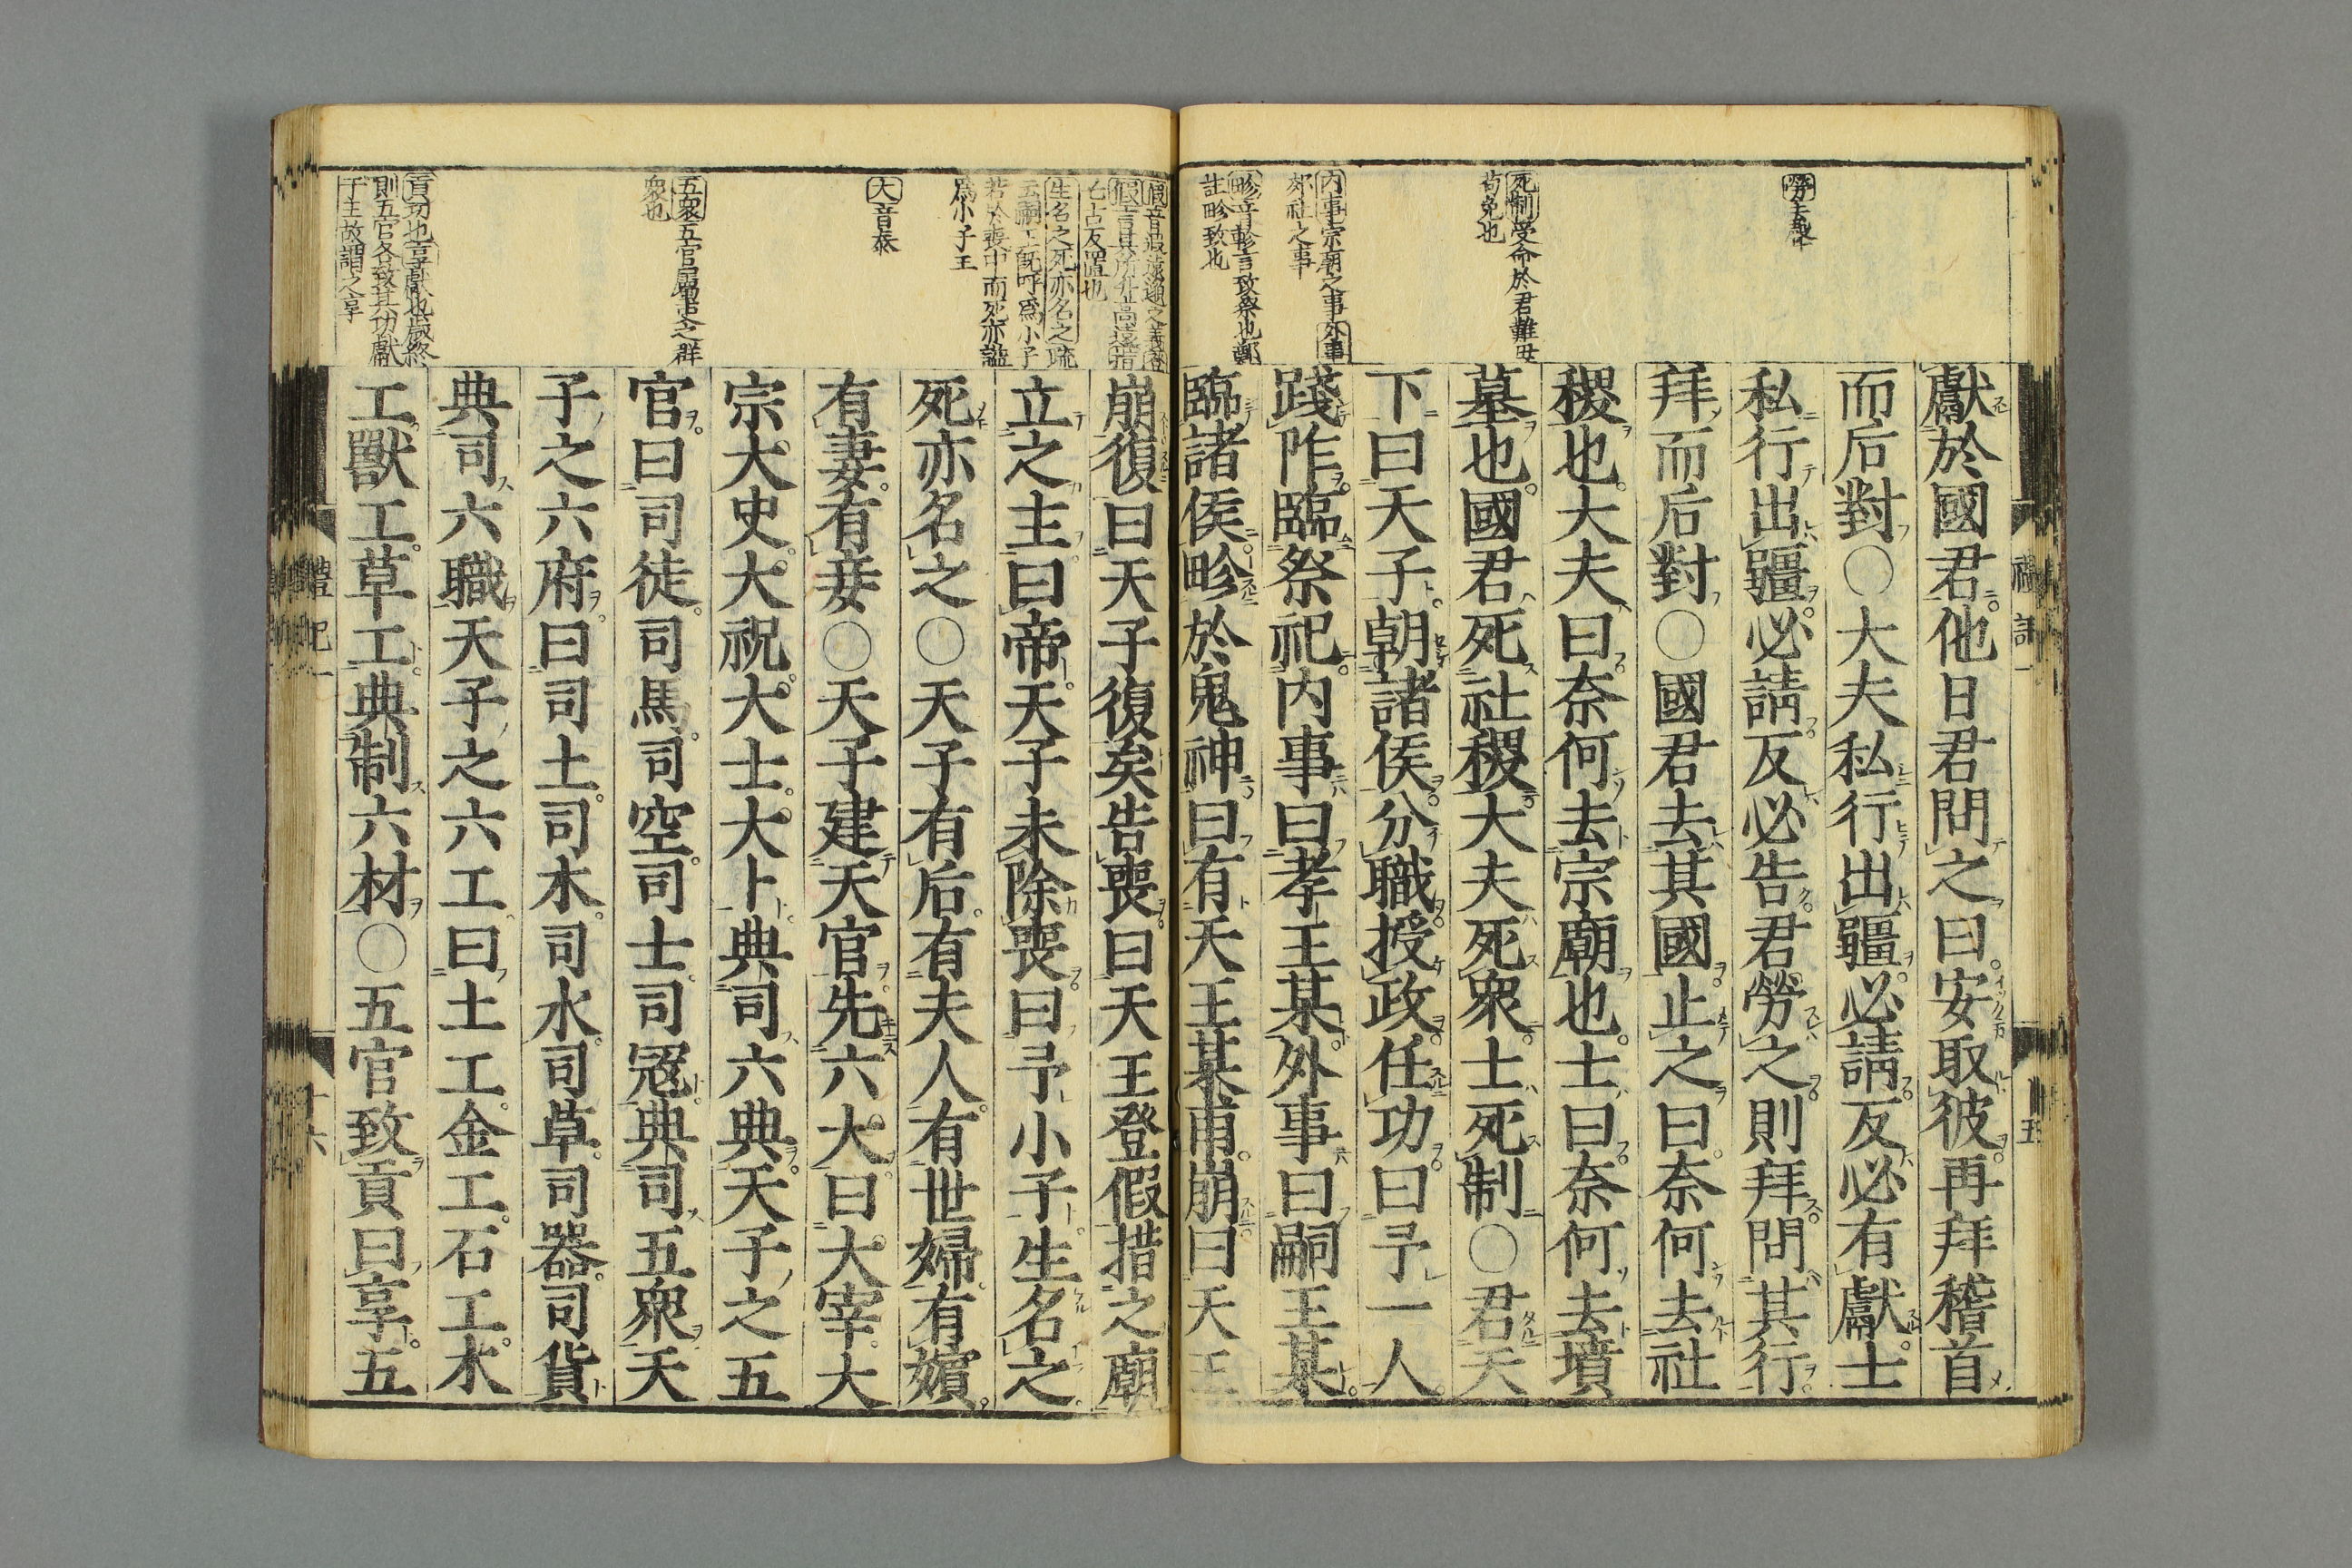 勞去聲
死制受命於君難毋
苟免也
内事宗廟之事外事
郊社之事
畛音軫言致祭也鄭
註畛致也
獻於國君他日君問之曰安取彼再拜稽首
而后對〇大夫私行出疆必請反必有獻士
私行出疆必請反必告君勞之則拜問其行
拜而后對〇國君去其國止之曰奈何去社
稷也大夫曰奈何去宗廟也士曰奈何去墳
墓也國君死社稷大夫死衆士死制〇君天
下曰天子朝諸侯分職授政任功曰予一人
踐阼臨祭祀内事曰孝王某外事曰嗣王某
臨諸侯畛於鬼神曰有天王某甫崩曰天王
五
假音遐遠邈之義
假言其所升高遠措
七占反置也
生名之死亦名之疏
若於喪中而死亦謚
爲小子王
大音泰
五衆五官屬吏之群
衆也
貢功也享獻也歲終
則五官各致其功獻
于主故謂之享
崩復曰天子復矣告喪曰天王登假措之廟
立之主曰帝天子未除喪曰予小子生名之
死亦名之〇天子有后有夫人有世婦有嬪
有妻有妾〇天子建天官先六大曰大宰大
宗大史大祝大士大卜典司六典天子之五
官曰司徒司馬司空司士司寇典司五衆天
子之六府曰司土司木司水司草司器司貨
典司六職天子之六工曰土工金工石工木
工獸工草工典制六材〇五官致貢曰享五
禮記一
十六